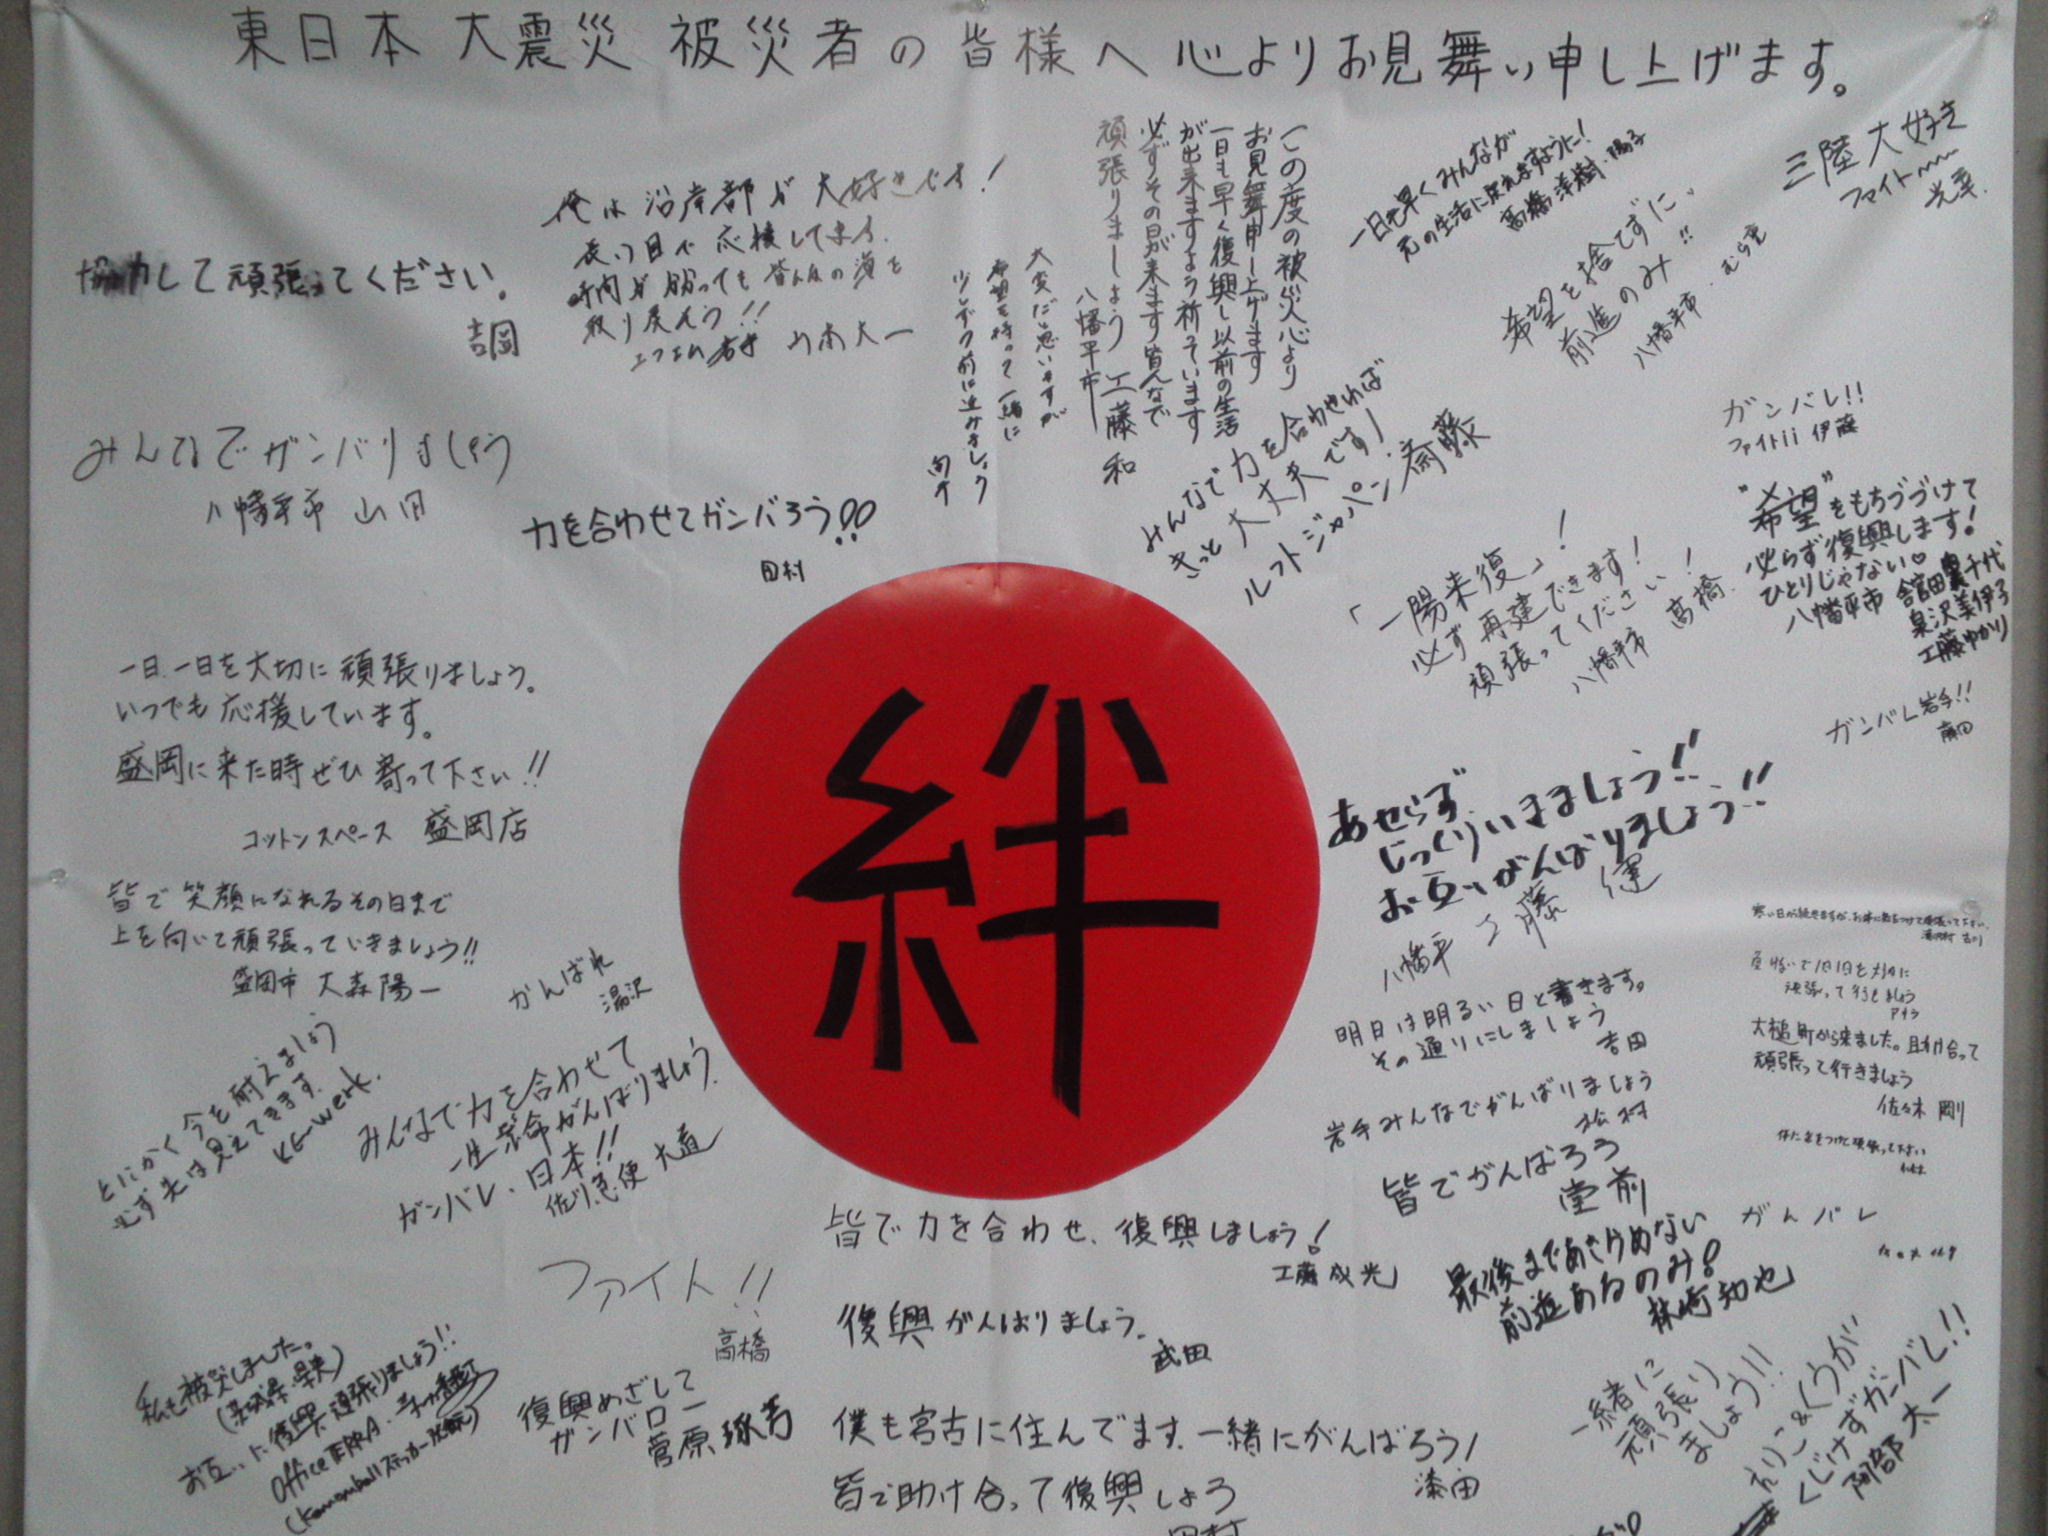 東日本大震災 被災者の皆様へ 心よりお見舞い申し上げます。
協力して頑張ってください。
吉岡
俺は沿岸部が大好きです!
長い目で応援してます。
時間が
皆んなの
取り戻そう!!
エフエム岩手 山本大一
大変だと思いますが
希望を持って一緒に
少しずつ前に進みましょう
この度の被災心より
お見舞申し上げます
一日も早く復興し以前の生活
が出来ますよう祈っています
必ずその日が来ます皆んなで
頑張りましょう
八幡平市 工藤 和
一日も早くみんなが
元の生活に戻れますように!
高橋洋樹・陽子
三陸大好き
ファイト〜
光幸.
希望を捨てずに、
前進のみ!!
八幡平市・むら宅
みんなでガンバりましょう
八幡平市 山田
力を合わせてガンバろう!!
田村
みんなで力を合わせれば
きっと大丈夫です!
ルフトジャパン 斎藤
ガンバレ!!
ファイトii 伊藤
"希望"をもちつづけて
必らず復興します!
ひとりじゃない♡
八幡平市
泉沢美伊子
工藤ゆかり
「一陽来復」!
必ず再建できます!
頑張ってください!
八幡平市 高橋
ガンバレ岩手!!
一日、一日を大切に頑張りましょう。
いつでも応援しています。
盛岡に来た時ぜひ寄って下さい!!
コットンスペース 盛岡店
絆
あせらず
じっくりいきましょう!!
お互いがんばりましょう!!
八幡平 工藤 健
皆で笑顔になれるその日まで
上を向いて頑張っていきましょう!!
盛岡市 大森陽一
がんばれ
湯沢
とにかく今を耐えましょう
必ず先は見えてきます.
KG-werk.
みんなで力を合わせて
一生懸命がんばりましょう.
ガンバレ、日本!!
佐川急便 大道
明日は明るい日と書きます。
その通りにしましょう
吉田
岩手みんなでがんばりましょう
松村
皆でがんばろう
堂前
頑張って行きましょう
大槌町から来ました。助け合って
頑張って行きましょう
佐々木 剛
体に気をつけて頑張って下さい
がんバレ
皆で力を合わせ、復興しましょう!
工藤 成光
最後まであきらめない
前進あるのみ!
林崎知也
ファイト!!
高橋
復興がんばりましょう。
武田
私も被災しました。
お互いに復興頑張りましょう!!
Office TERRA.
復興めざして
ガンバロー
菅原 琢芳
僕も宮古に住んでます.一緒にがんばろう!
漆田
皆で助け合って復興しよう
田村
一緒に
頑張り
ましょう!!
くじけずガンバレ!!
阿部 太一